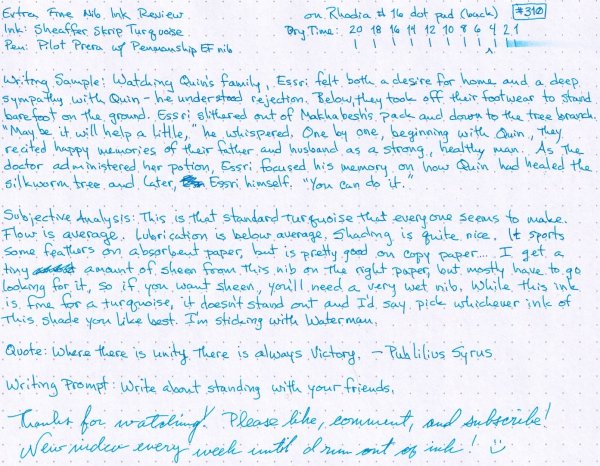 Extra Fine Nib Ink Review on Rhodia #16 dot pad (back) #310
Ink: Sheaffer Skrip Turquoise Dry Time: 20 18 16 14 12 10 8 6 4 2 1
Pen: Pilot Prera w/ Penmanship EF nib
Writing Sample: Watching Quin's family, Essri felt both a desire for home and a deep
sympathy with Quin - he understood rejection. Below, they took off their footwear to stand
barefoot on the ground. Essri slithered out of Makhabesh's pack and down to the tree branch.
"May be it will help a little," he whispered. One by one, beginning with Quin, they
recited happy memories of their father and husband as a strong, healthy man. As the
doctor administered her potion, Essri focused his memory on how Quin had healed the
silkworm tree and later, Essri himself. "You can do it."
Subjective Analysis: This is that standard turquoise that everyone seems to make.
Flow is average. Lubrication is below average. Shading is quite nice. It sports
some feathers on absorbent paper, but is pretty good on copy paper... I get a
tiny amount of sheen from this nib on the right paper, but mostly have to go
looking for it, so if you want sheen, you'll need a very wet nib. While this ink
is fine for a turquoise, it doesn't stand out and I'd say pick whichever ink of
this shade you like best. I'm sticking with Waterman.
Quote: Where there is unity there is always victory. - Publilius Syrus
Writing Prompt: Write about standing with your friends.
Thanks for watching! Please like, comment, and subscribe!
New video every week until I run out of ink!